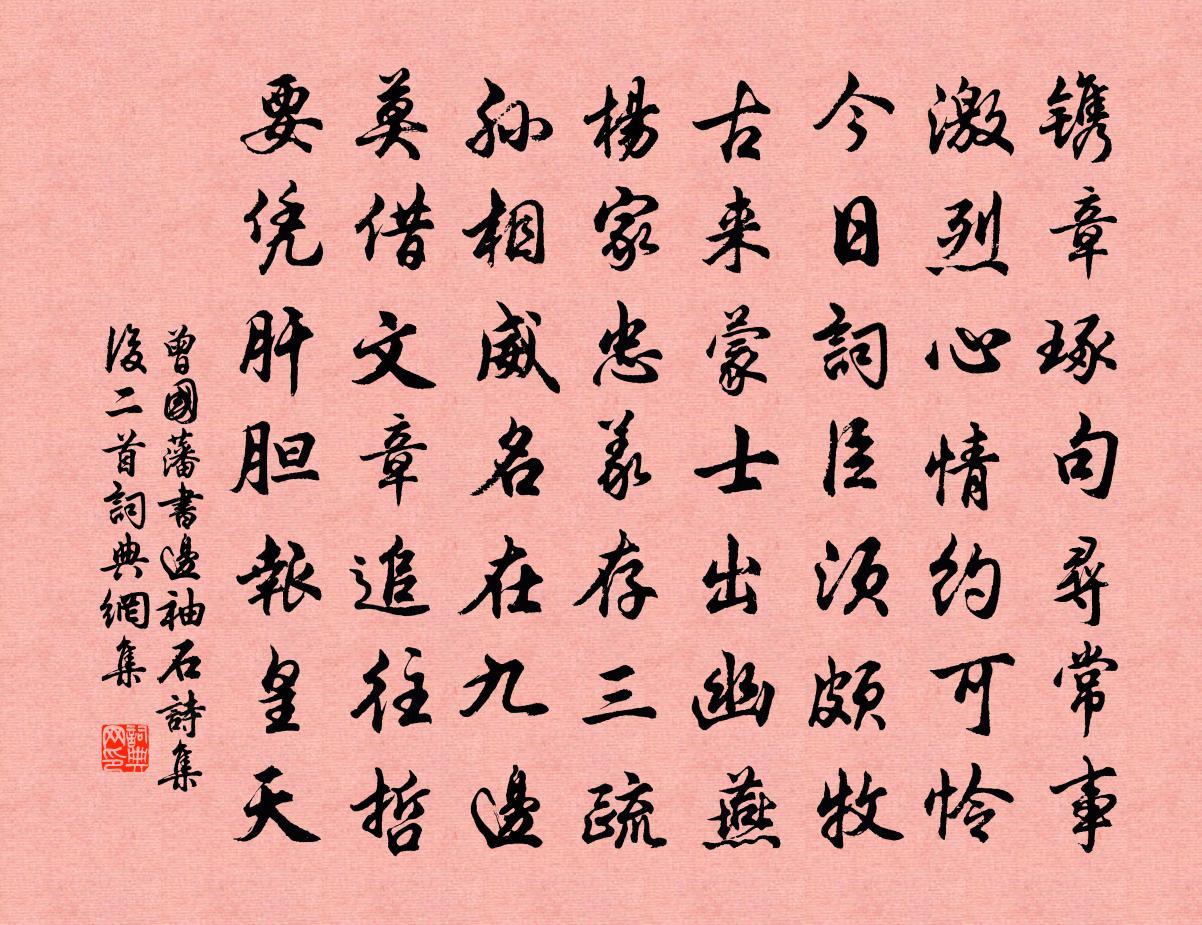 镌章琢句尋常事
激烈心情约可怜
今日詞臣须颇牧
古来蒙士出幽燕
楊家忠義存三疏
孙相威名在九邊
莫借文章追往哲
要凭肝胆報皇天
曾國藩書邊袖石詩集
後二首詞典網集
詞典
网印